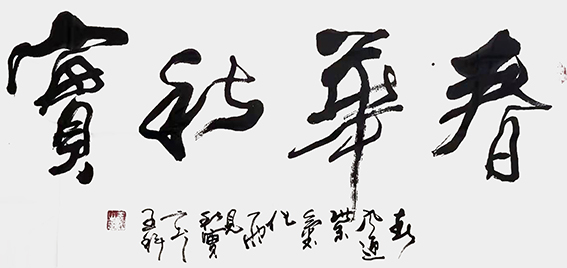 春華秋實
春風通紫氣化雨見秋實